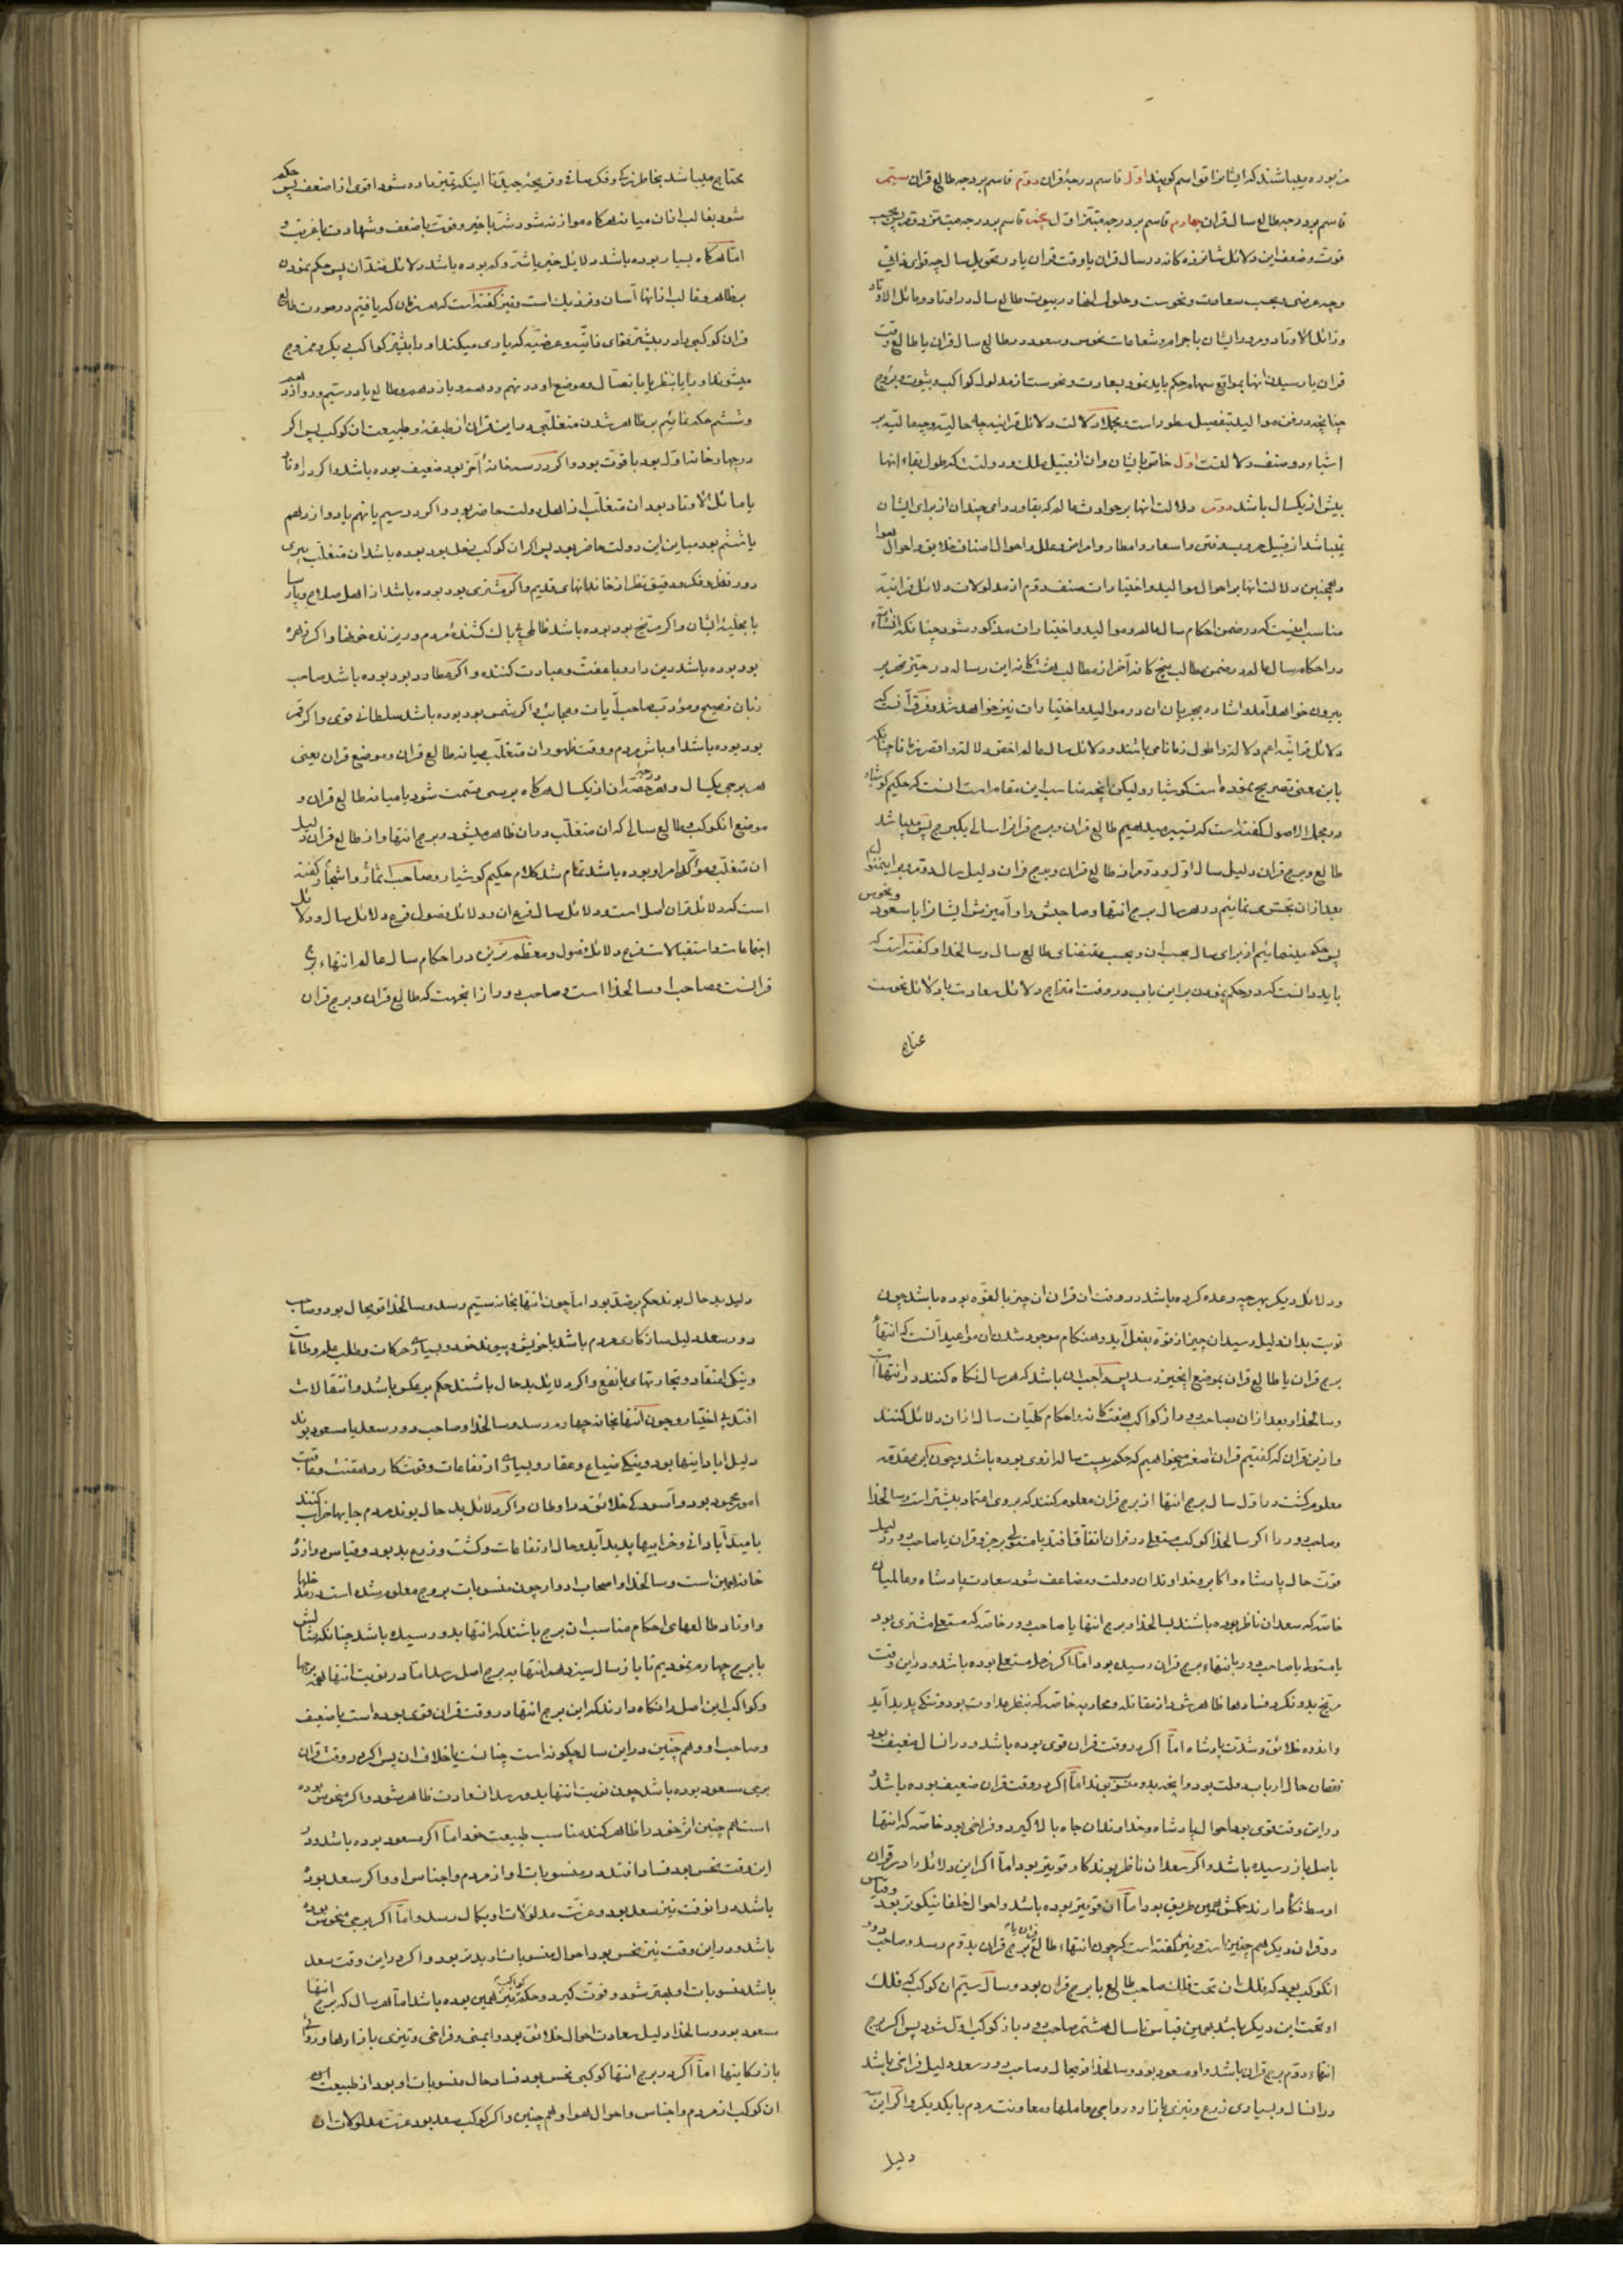 بوده میباشند که ایشانرا قواسم کویند اول قاسم درجهٔ قران دوم قاسم بر درجه طالع قران سیّم
قاسم بر درجه طالع سال قران چهارم قاسم بر درجه اول پنجم قاسم بر درجه
قوت و ضعف این دلائل شانزده کانه در سال قران یا وقت قران یا در تحویل سال چه قوای ذاتی
وچه عرضی و بحسب سعادت و نحوست و حلول در بیوت طالع سال در اوتاد و مائل الاوتاد
و زائل الاوتاد و مرور ایشان باجرام و شعاعات نحوس و سعود در طالع سال قران یا طالع وقت
قران یا رسیدن انها بمواقع سهام حکم باید نمود بسعادت و نحوست از مدلول کواکب و بیوت و بروج
چنانچه در فن موالید بتفصیل مسطور است مجملا دلالت دلائل قرانیه چه حالیه و چه مآلیه بر
اشیاء دو صنف دلالتست اول خاص بایشان وان از قبیل ملک و دولت که طول بقاء انها
بیش از یکسال باشد دوّم دلالت انها بر حوادث عالم که بقا و دوامی چندان از برای ایشان
نمیباشد از قبیل حروب و فتن و اسعار و امطار و امراض و علل و احوال اصناف خلایق و احوال هوا
و همچنین دلالت انها بر احوال موالید و اختیارات صنف دوّم از مدلولات دلائل قرانیه
مناسب انست که در ضمن احکام سال عالم و موالید و اختیارات مذکور شود چنانکه انشاءالله
در احکام سال عالم در ضمن مطالب پنج کانه آخر از مطالب کانه این رساله در حیز تحریر
بیرون خواهد آمد و اشاره بجریان ان در موالید و اختیارات نیز خواهد شد و فرق آنست که
دلائل قرانیه اعم دلالة و اطول زمانا می باشند و دلائل سال عالم اخص دلالة و اقصر زمانا چنانکه
باین معنی تصریح نموده است کوشیار ولیکن انچه مناسب این مقام است انست که حکیم کوشیار
در مجمل الاصول کفته است که تسییر میدهیم طالع قران و برج قرانرا سالی یکبرج پس میباشد
طالع و برج قران دلیل سال اوّل و دوّم از طالع قران و برج قران دلیل سال دوّم و بر این منوال
بعد از ان جستجوی نمائیم در هر سال برج انتها و صاحبش را و آمیزش ایشانرا با سعود و نحوس
پس حکم مینمائیم از برای سال بحسب ان و بحسب مقتضای طالع سال و سالخدا و کفته است که
باید دانست که در حکم نمودن بر این باب در وقت امتزاج دلائل سعادت با دلائل نحوست
محتاج
محتاج میباشد بخاطر زیرک و فکر صافی و قریحهٔ جیده تا اینکه تمیز داده شود اقوی از اضعف پس حکم
شود بغالب انان میانه هرکاه موازنه شود شر با خیر و قوت با ضعف و شهادت با غربت و
امّا هرکاه بسیار بوده باشد دلایل خیر یا شر و کم بوده باشد دلائل ضد ان پس حکم نمودن
بر ظاهر و غالب از انها آسان و نزدیک است و نیز کفته است که هر زمان که یافتیم در صورت طالع
قران کوکبی را در بیشتر قوای ذاتیه و عرضیه که یاری میکند اورا بیشتر کواکب یکدیگر و ممزوج
میشوند او را یا بنظر یا باتصال و موضع او در نهم و دهم و یازدهم و طالع یا در سیّم و دوازدهم
و ششم حکم نمائیم بر ظاهر شدن متغلّبی در این قران از طبقهٔ و طبیعت ان کوکب پس اکر
در چهار خانه اول بود با قوت بود و اکر در سه خانهٔ آخر بود ضعیف بوده باشد و اکر در اوتاد
یا مائل الاوتاد بود ان متغلّب از اهل دولت حاضر بود و اکر در سیم یا نهم یا دوازدهم
یا ششم بود مباین این دولت حاضر بود پس اکر ان کوکب زحل بود بوده باشد ان متغلّب پیری
دور تفکر و فکر و دقیق نظر از خاندانهای قدیم و اکر مشتری بود بوده باشد از اهل صلاح و پارسا
یا بحلیهٔ ایشان و اکر مریخ بود بوده باشد ظالمی بی باک کشندهٔ مردم و ریزنده خونها و اکر زهره
بود بوده باشد دین دار و با عفت و عبادت کننده و اکر عطارد بود بوده باشد صاحب
زبان فصیح و مؤدّب صاحب آیات و عجائب و اکر شمس بود بوده باشد سلطانی قوی و اکر قمر
بود بوده باشد اوباش مردم و وقت ظهور ان متغلّب میانه طالع قران و موضع قران یعنی
هر برجی یکسال و هر درجه حصه ان از یکسال هرکاه بر سی قسمت شود یا میانه طالع قران و
موضع انکوکب و طالع سالی که ان متغلّب در ان ظاهر میشود و برج انتها و از طالع قران دلیل
ان متغلّب و مؤکّد امر او بوده باشد تمام شد کلام حکیم کوشیار و صاحب اثمار و اشجار کفته
است که دلائل قران اصل است و دلائل سال فرع ان و دلائل فصول فرع دلائل سال و دلائل
اجتماعات و استقبالات فرع دلائل فصول و معظم ترین در احکام سال عالم انتهاء برج
قرانست و صاحب او سالخدا است و صاحب دور از انجهت که طالع قران و برج قران
ودلائل دیکر بهرچه وعده کرده باشد در وقت ان قران ان چیز بالقوّه بوده باشد چون
نوبت بدان دلیل رسید ان چیز از قوّه بفعل آید و هنکام موجود شدن ان مواعید آنست که انتهاء
برج قران یا طالع قران بموضع انچیز رسد پس واجب ان باشد که هر سال نکاه کنند در انتهاآت
و سالخداه و بعد از ان بصاحب دور از کواکب هفتکانه و احکام کلیّات سال از ان دلائل کنند
و از ین قران که کفتیم قران اصغر میخواهیم که حکم بیست سال از وی بوده باشد و چون این مقدمه
معلوم کشت در اوّل سال برج انتها از برج قران معلوم کنند که بر وی اعتماد بیشتر است و سالخدا
و صاحب دور را اکر سالخدا کوکب مستعلی در قران اتفاق افتد یا مستولی بر جزو قران یا صاحب دور دلیل
قوّت حال پادشاه و اکابر و خداوندان دولت و مضاعف شود سعادت پادشاه و عالمیان
خاصّه که سعدان ناظر بوده باشند بسالخدا و برج انتها یا صاحب دور خاصّه که مستعلی مشتری بود
یا مستولی یا صاحب دور یا انتهاء برج قران رسیده بود امّا اکر زحل مستعلی بوده باشد و در این وقت
مریخ بدو نکرد فسادها ظاهر شود از مقاتله و محاربه خاصّه که بنظر عداوت بود و تنکی پدید آید
و اندوه خلائق و شدّت پادشاه امّا اکر در وقت قران قوی بوده باشد و در انسال ضعیف بود
نقصان حال ارباب دولت بود و انچه بدو منسوب بوند امّا اکر در وقت قران ضعیف بوده باشد و
در این وقت قوی بود احوال پادشاه و خداوندان جاه بالا کیرد و فراخی بود خاصّه که انتها
باصل باز رسیده باشد و اکر سعدان ناظر بوند کار قویتر بود امّا اکر این دلائل را در قران
اوسط نکاه دارند حکمش همین طریق بود امّا ان قویتر بوده باشد و احوال خلفا نیکوتر بود و قیاس
در قران دیکر هم چنین است و نیز کفته است که چون انتهاء طالع قران یا برج قران بدوّم رسد و صاحب دور
انکوکب بود که فلک ان تحت فلک صاحب طالع یا برج قران بود و سال سیّم ان کوکب که فلک
او تحت این دیکر باشد بهمین قیاس تا سال هشتم صاحب دور باز کوکب اوّل شود پس اکر برج
انتهاء دوّم برج قران باشد و او مسعود بود و سالخدا قویحال و صاحب دور سعد دلیل فراخی باشد
در انسال و بسیاری زرع و تیزی بازار و روایی معاملها و معاونت مردم با یکدیکر و اکر این
دلیل
دلیل بد حال بوند حکم بر ضد بود امّا چون انتها بخانه سیّم رسد و سالخدا قویحال بود و صاحب
دور سعد دلیل سازکاری مردم باشد با خویش و پیوند خود و بسیاری حرکات و طلب علم و طاعات
و نیکی اعتقاد و تجارتهای با نفع و اکر دلایل بد حال باشند حکم بر عکس باشد و انتقالات
افتد بی اختیار و چون انتها بخانه چهارم رسد و سالخدا و صاحب دور سعد یا مسعود بوند
دلیل ابادانیها بود و نیکی ضیاع و عقار و بسیاری ارتفاعات و قوت کار دهقنت و عاقبت
امور محمود بود و آسودکی خلائق در اوطان و اکر دلائل بد حال بوند مردم جایها خراب کنند
بامید آبادانی و خرابیها پدید آید و حال ارتفاعات و کشت و زرع بد بود و قیاس دوازده
خانه همین است و سالخدا و اصحاب ادوار چون منسوبات بروج معلوم شده است
و اوتاد طالعهای احکام مناسب ان برج باشند که انتها بدو رسیده باشد چنانکه مثالش
با برج چهارم نمودیم تا باز سال سیزدهم انتها به برج اصل رسد امّا در نوبت انتها برجها
و کواکب این اصل را نکاه دارند که این برج انتها در وقت قران قوی بوده است یا ضعیف
و صاحب او و هم چنین در این سال چکونه است چنانست یا خلاف ان پس اکر در وقت قران
برجی مسعود بوده باشد چون نوبت انتها بدو رسد ان سعادت ظاهر شود و اکر منحوس بوده
است هم چنین اثر خود را ظاهر کند مناسب طبیعت خود امّا اکر مسعود بوده باشد و در
این وقت نحس بود فساد افتد در منسوبات او از مردم و اجناس او و اکر سعد بوده
باشد در انوقت نیز سعد بود و عزت مدلولات او بکمال رسد و امّا اکر برجی منحوس بوده
باشد و در این وقت نیز نحس بود احوال منسوبات او بدتر بود و اکر در این وقت سعد
باشد منسوبات او بهتر شود و قوت کیرد و حکم کواکب نیز همین بوده باشد امّا هر سال که برج انتها
مسعود بود و سالخدا دلیل سعادت احوال خلائق بود و ایمنی و فراخی و تیزی بازارها و روائی
بازرکانیها امّا اکر در برج انتها کوکبی نحس بود فساد حال منسوبات او بود از طبیعت این
ان کوکب از مردم و اجناس و احوال هوا و هم چنین و اکر کوکب سعد بود عزت مدلولات ان